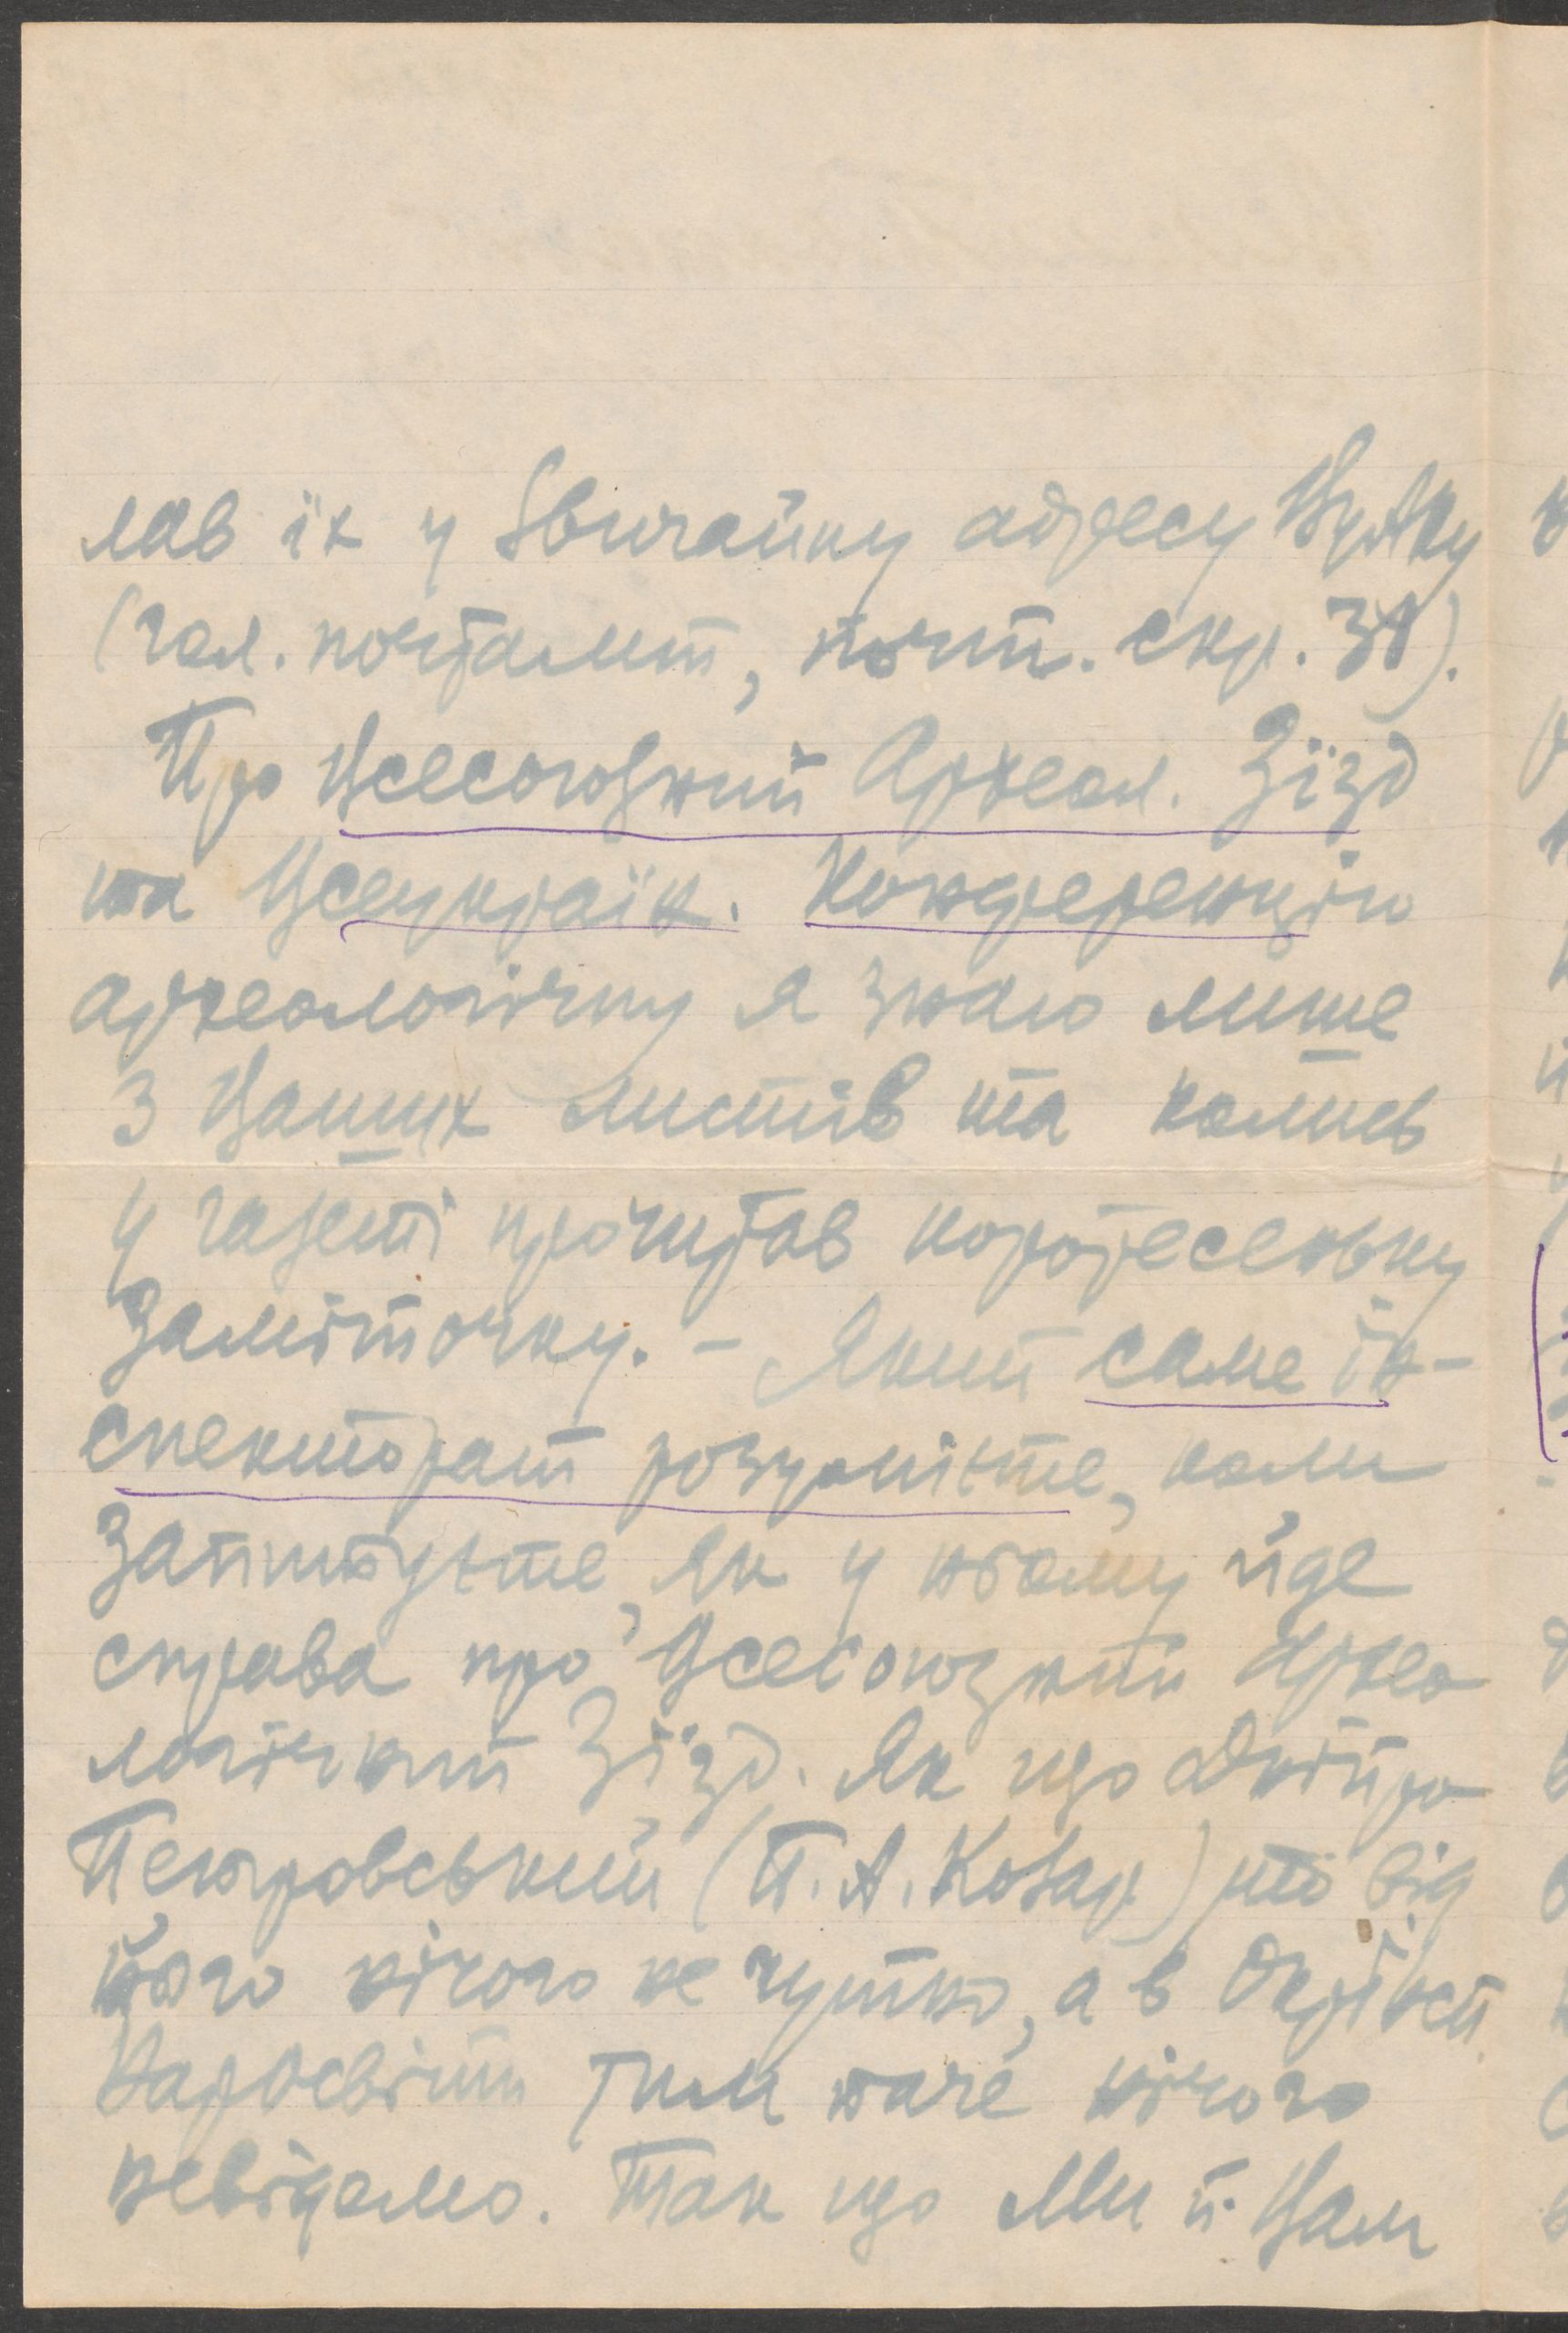 лав їх у звичайну адресу ВУАКу
(гол. поштамт, почт. скр. 38).
Про Всесоюзний Археол. Зїзд
та Всеукраїн. Конференцію
археологічну я знаю лише
з Ваших листів та колись
у газеті прочитав коротесеньку
заміточку. – Який саме ін-
спекторат розумієте, коли
запитуєте, як у ньому йде
справа про Всесоюзний Архео
логічний Зїзд. Як що Дніпро
Петровський (П. А. Козар) то від
його нічого не чутно, а в Окрінсп.
НарОсвіти тим паче нічого
невідомо. Так що ми й Вам